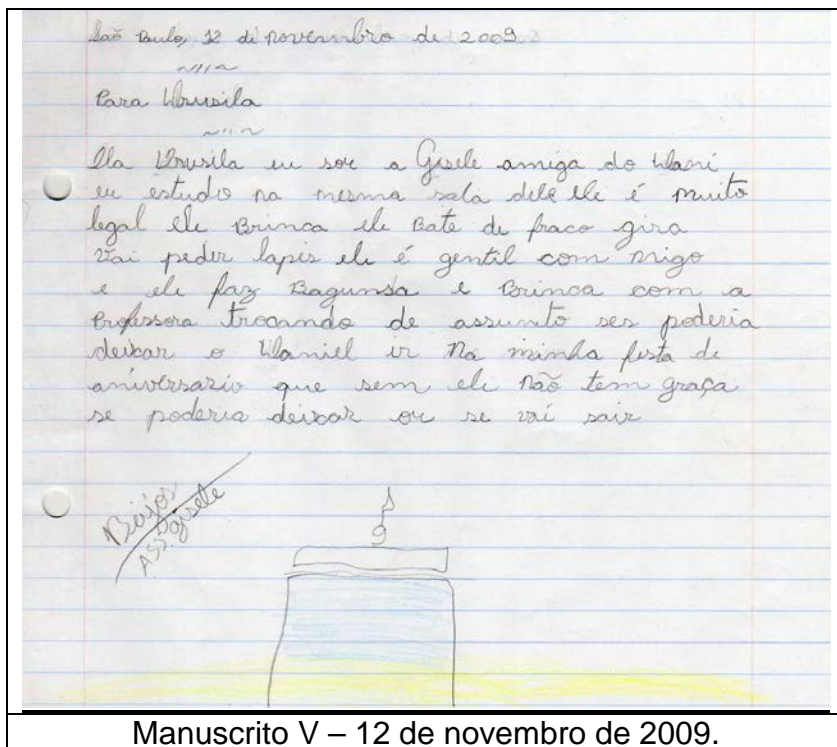 São Paulo, 12 de novembro de 2009
Para Drusila
Ola Drusila eu sou a Gisele amiga do Dani
eu estudo na mesma sala dele ele é muito
legal ele Brinca ele Bate de fraco gira
vai peder lapis ele é gentil com migo
e ele faz Bagunsa e Brinca com a
Professora trocando de assunto ses poderia
deixar o Daniel ir na minha festa de
aniversario que sem ele não tem graça
se poderia deixar ou se vai sair
Beijos
ASS: gisele
9
Manuscrito V – 12 de novembro de 2009.